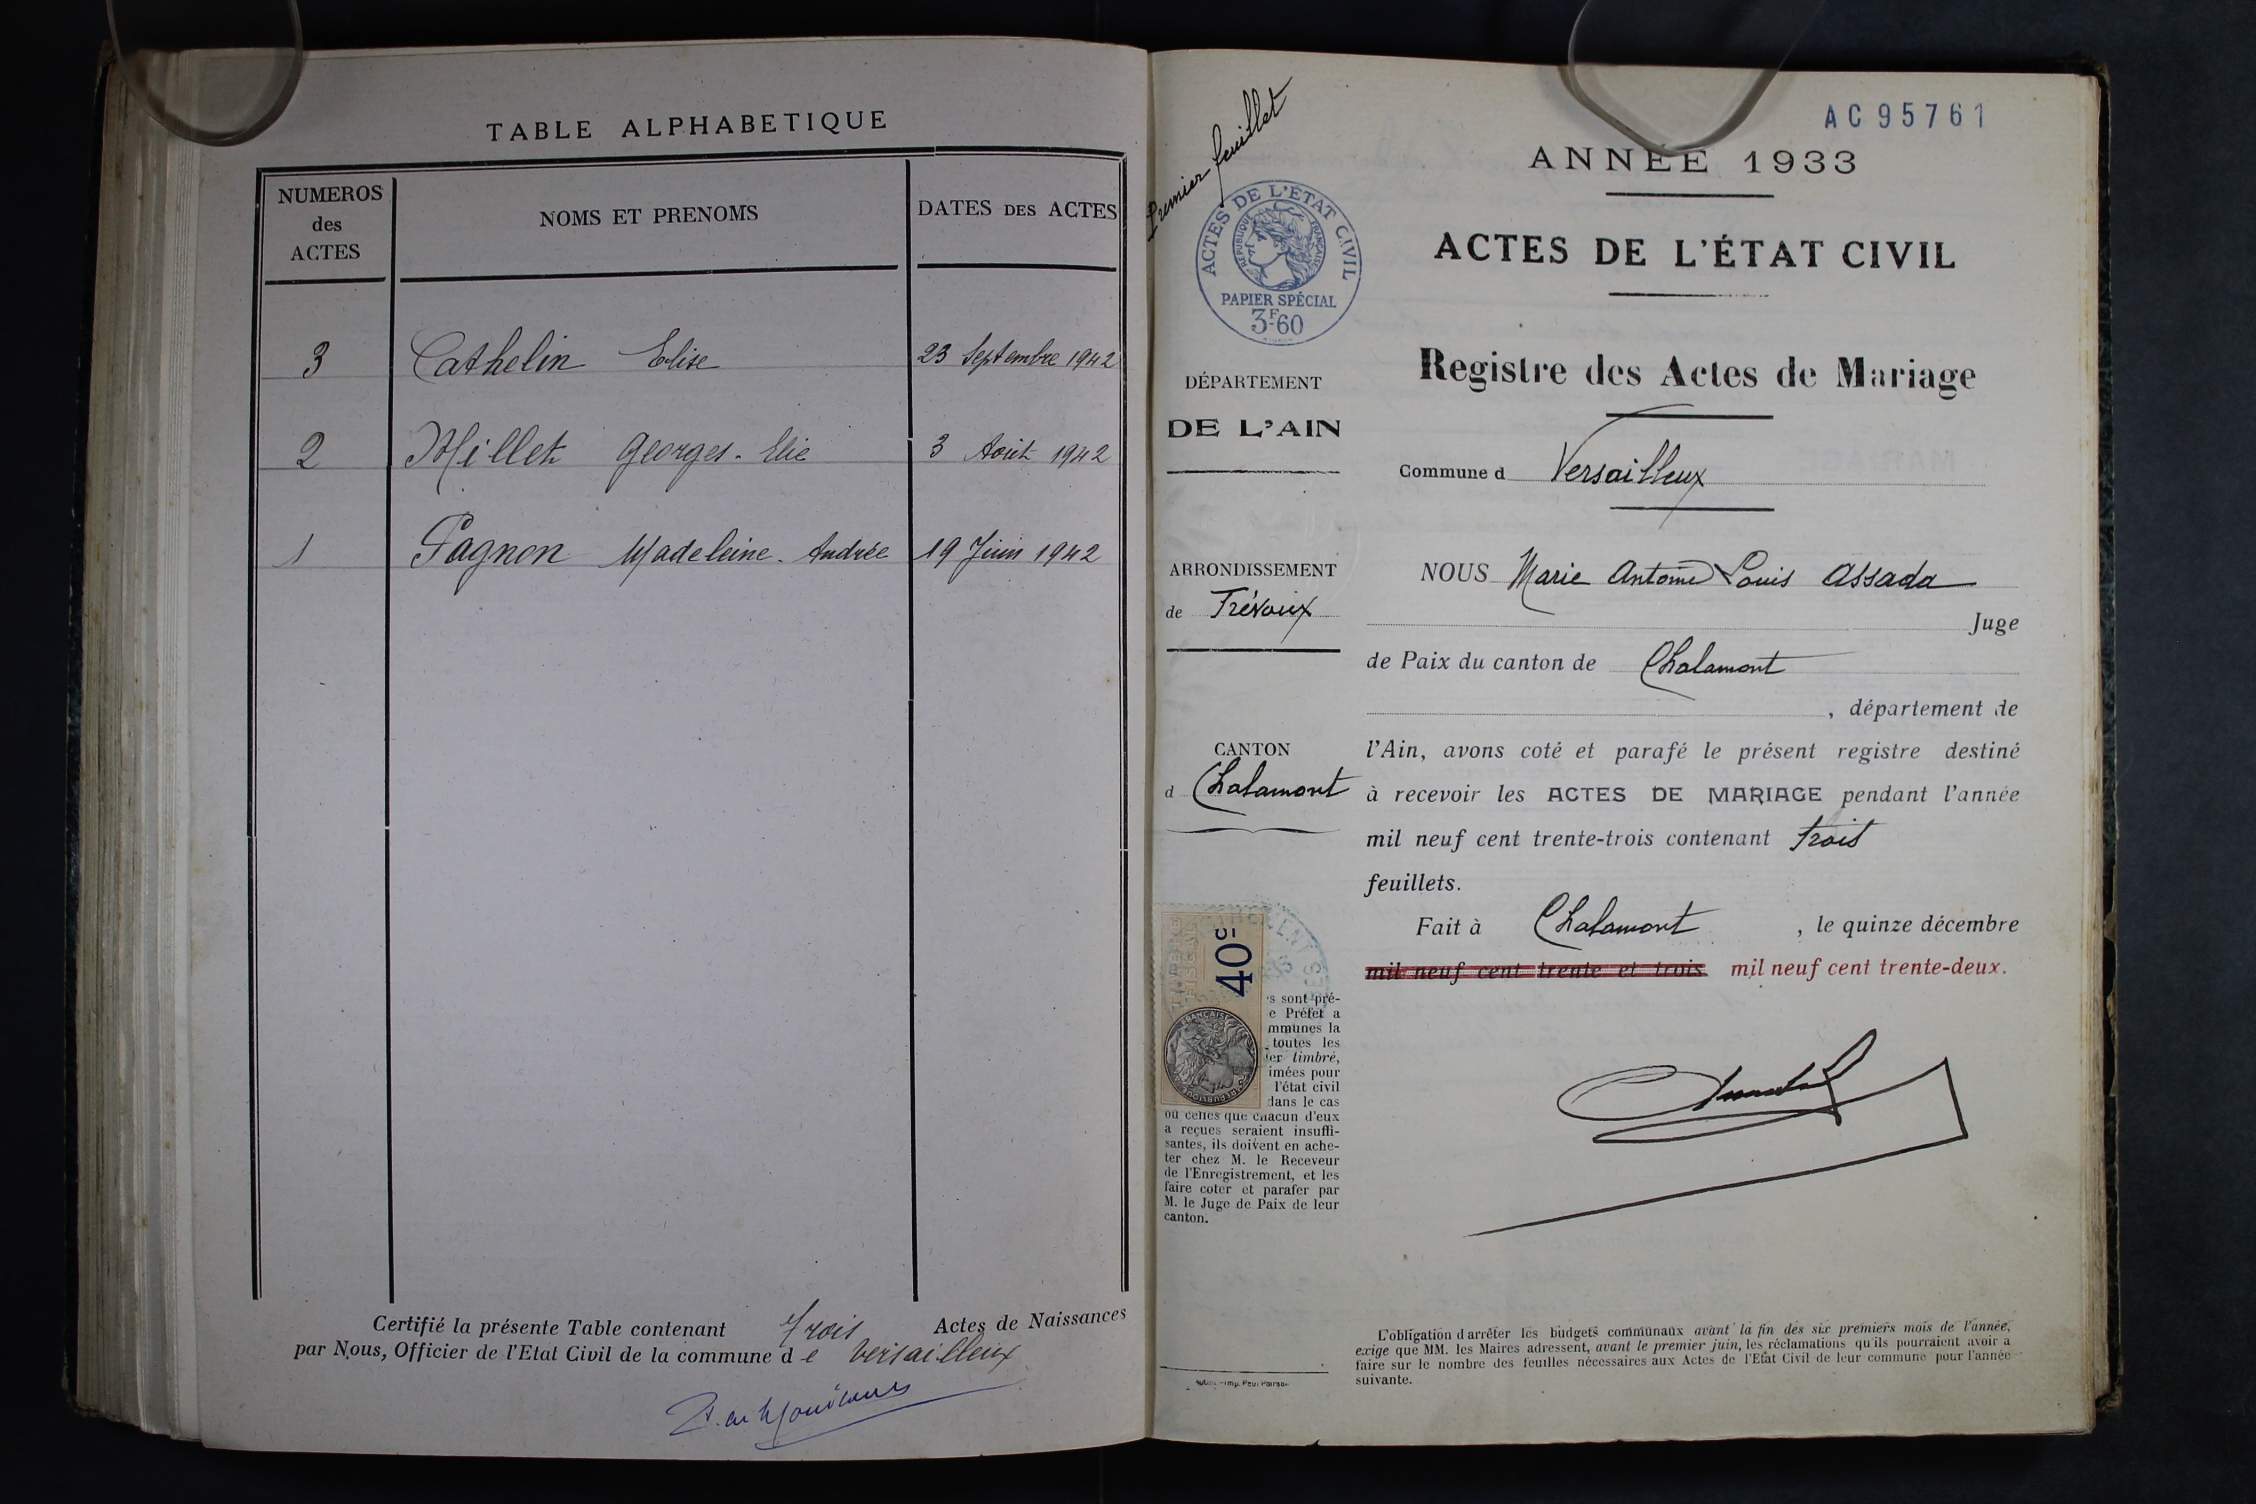 TABLE ALPHABETIQUE
NUMEROS
des
ACTES
NOMS ET PRENOMS
DATES DES ACTES
3 Cathelin Elise 23 Septembre 1942
2 Millet Georges-Elie 3 Août 1942
1 Pagnon Madeleine-Andrée 19 Juin 1942
Certifié la présente Table contenant Trois Actes de Naissances
par Nous, Officier de l'Etat Civil de la commune de Versailleux
Premier feuillet
ACTES DE L'ÉTAT CIVIL
RÉPUBLIQUE FRANÇAISE
PAPIER SPÉCIAL
3F60
DÉPARTEMENT
DE L'AIN
ARRONDISSEMENT
de Trévoux
CANTON
d Chalamont
40c
s sont pré-
e Préfet a
mmunes la
toutes les
er timbré,
imées pour
l'état civil
dans le cas
où celles que chacun d'eux
a reçues seraient insuffi-
santes, ils doivent en ache-
ter chez M. le Receveur
de l'Enregistrement, et les
faire coter et parafer par
M. le Juge de Paix de leur
canton.
AC95761
ANNÉE 1933
ACTES DE L'ÉTAT CIVIL
Registre des Actes de Mariage
Commune d Versailleux
NOUS Marie Antoine Louis Assada
Juge
de Paix du canton de Chalamont
, département de
l'Ain, avons coté et parafé le présent registre destiné
à recevoir les ACTES DE MARIAGE pendant l'année
mil neuf cent trente-trois contenant trois
feuillets.
Fait à Chalamont , le quinze décembre
mil neuf cent trente et trois mil neuf cent trente-deux.
L'obligation d'arrêter les budgets communaux avant la fin des six premiers mois de l'année,
exige que MM. les Maires adressent, avant le premier juin, les réclamations qu'ils pourraient avoir à
faire sur le nombre des feuilles nécessaires aux Actes de l'Etat Civil de leur commune pour l'année
suivante.